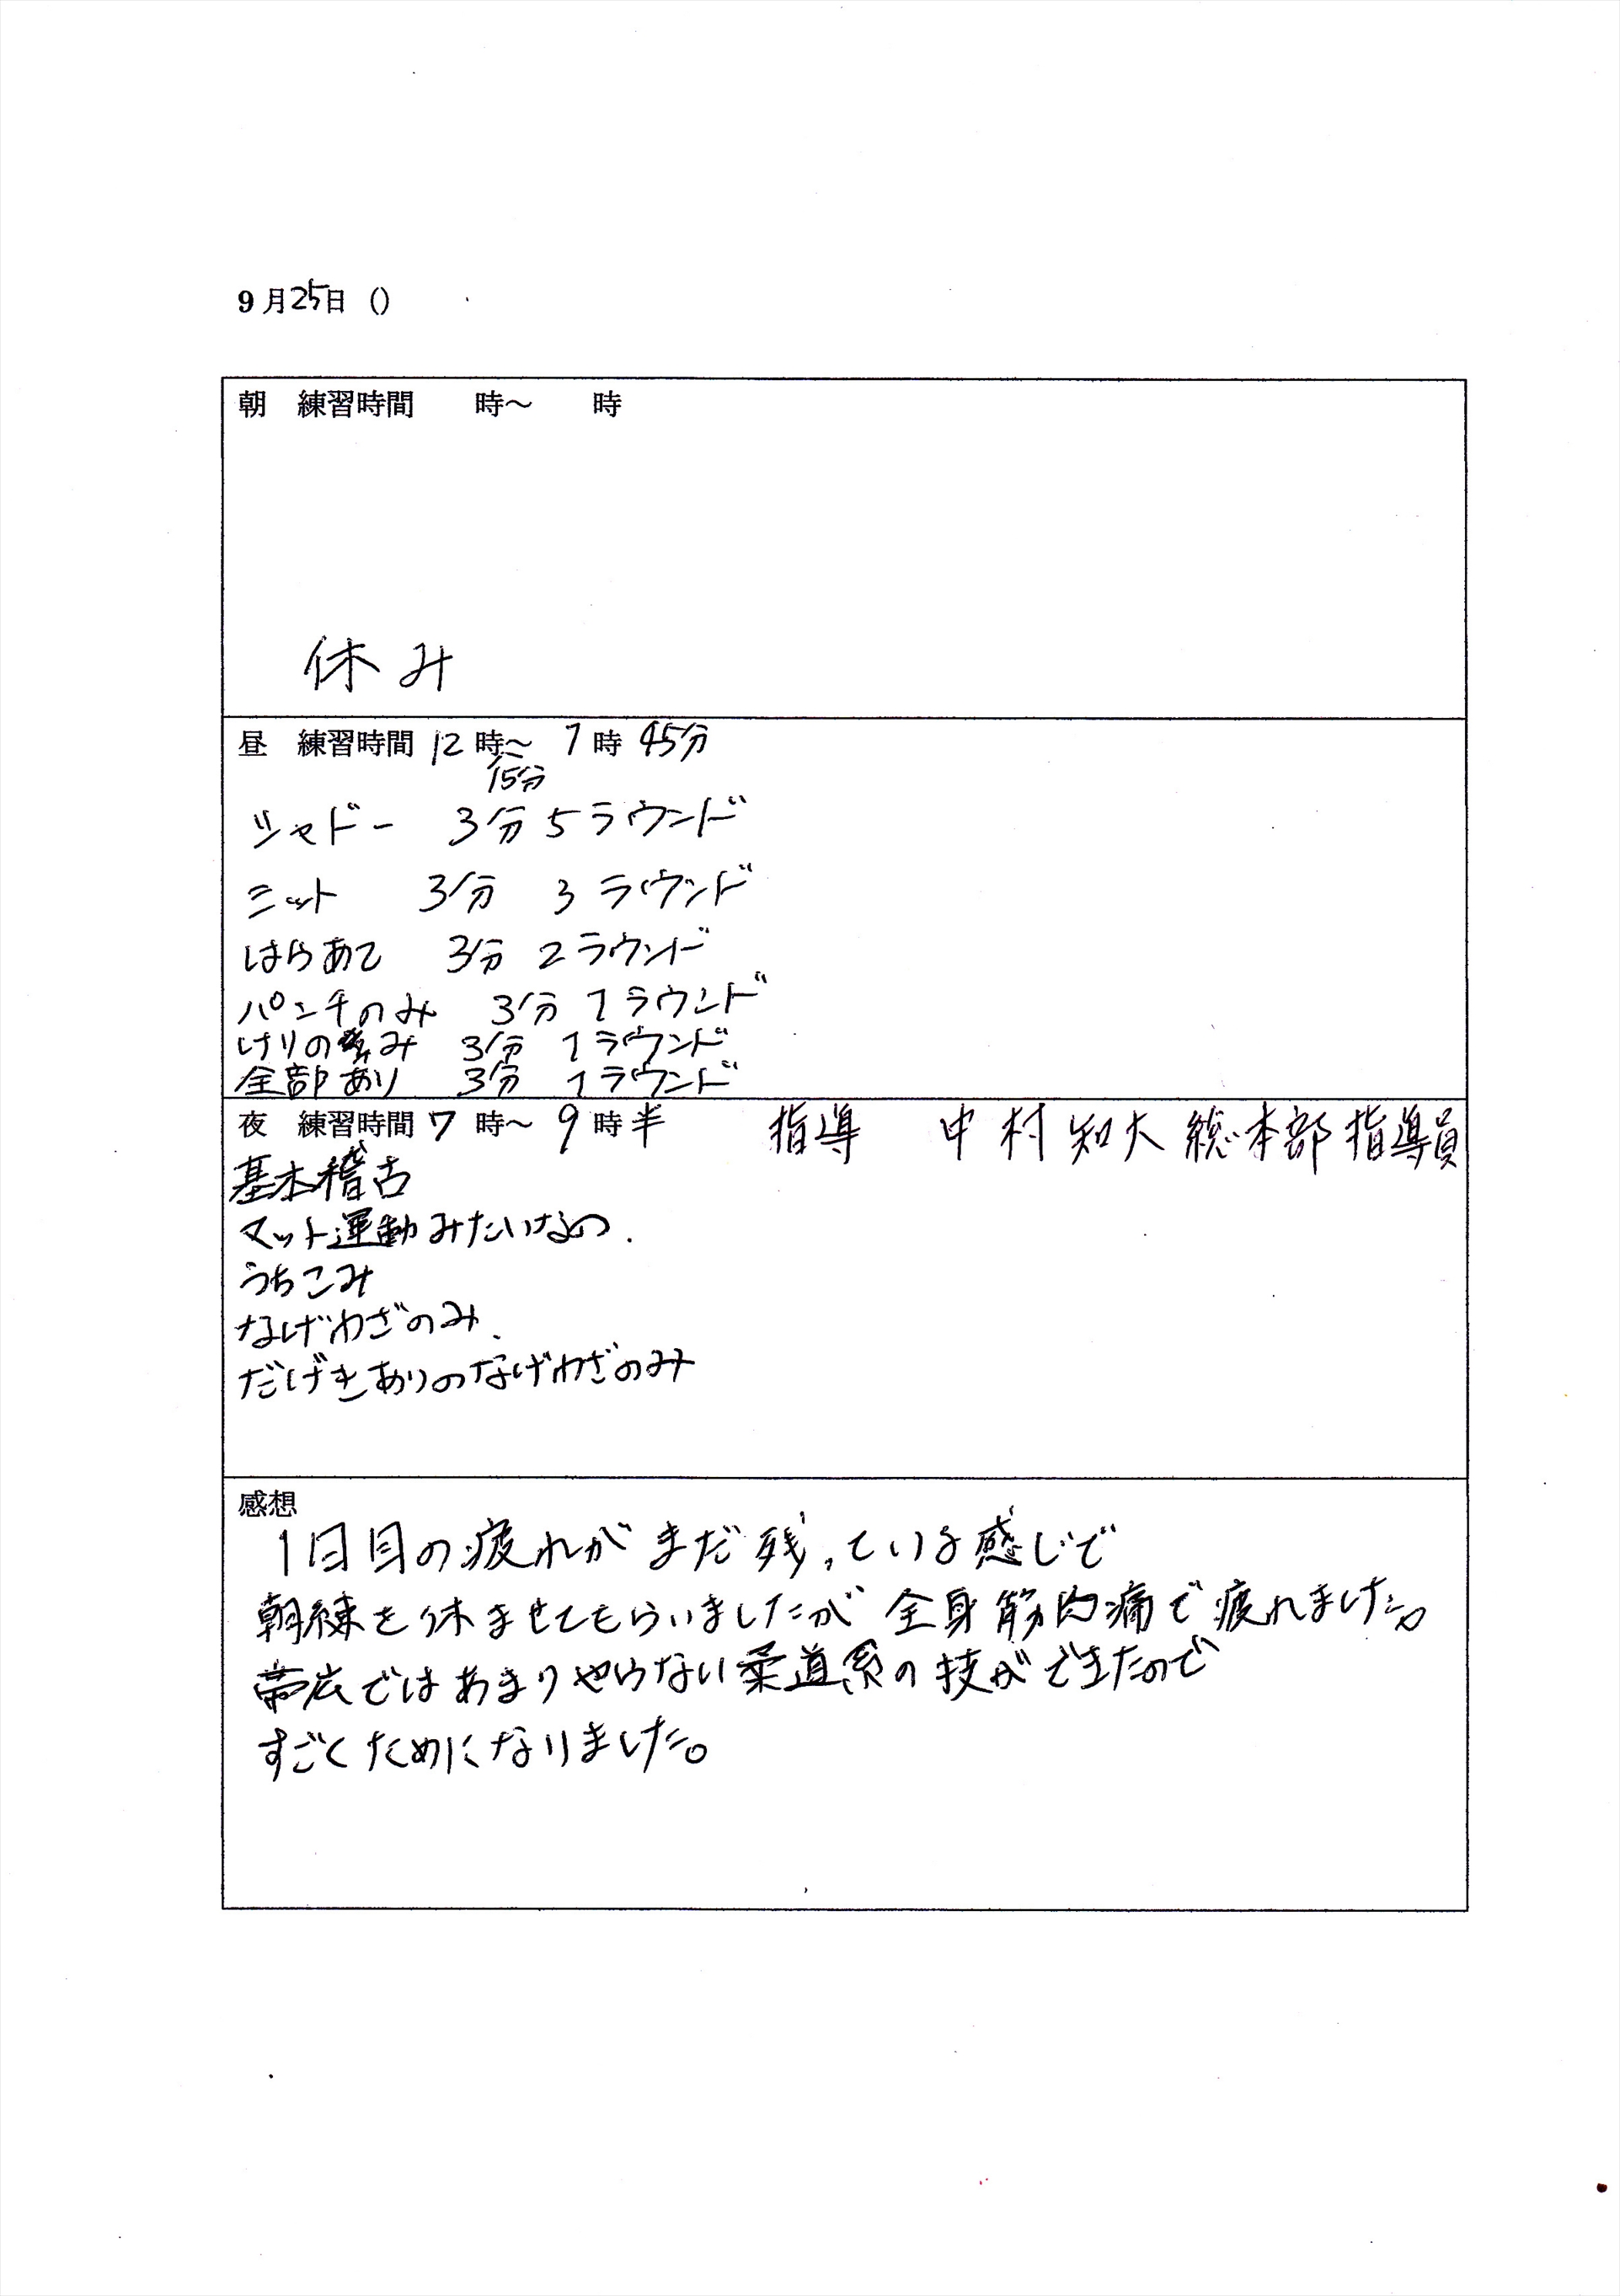 9月25日 ()
朝 練習時間 時～ 時
休み
昼 練習時間 12時～ 1時 45分
15分
シャドー 3分 5ラウンド
ミット 3分 3ラウンド
はらあて 3分 2ラウンド
パンチのみ 3分 1ラウンド
けりのみ 3分 1ラウンド
全部あり 3分 1ラウンド
夜 練習時間 7時～ 9時半 指導 中村知大総本部指導員
基本稽古
マット運動みたいなの.
うちこみ
なげわざのみ.
だげきありのなげわざのみ
感想
1日目の疲れがまだ残っている感じで
朝練を休ませてもらいましたが全身筋肉痛で疲れました。
帯広ではあまりやらない柔道系の技ができたので
すごくためになりました。